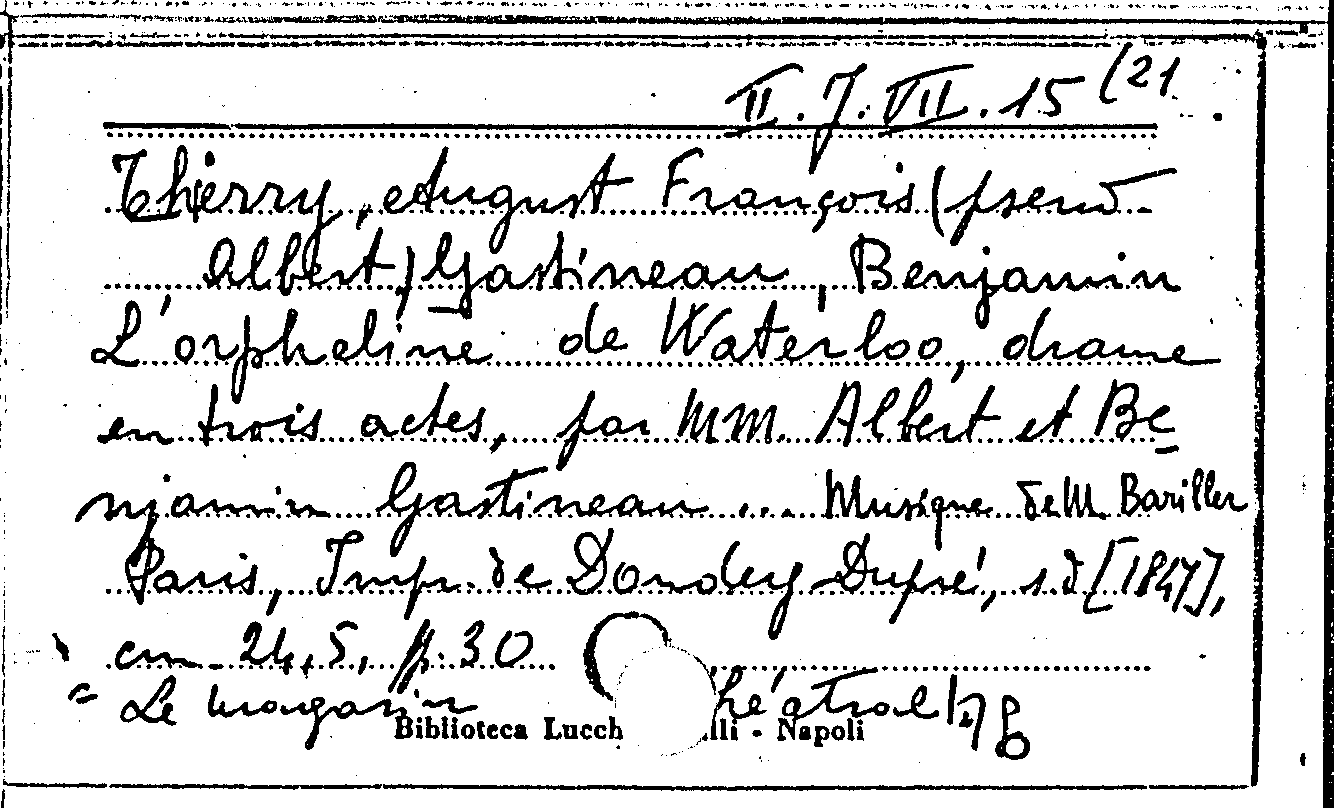 II. J. VII. 15 (21
Thierry, August François (pseud.
Albert) Gastineau, Benjamin
L'orpheline de Waterloo, drame
en trois actes, par MM. Albert et Be
njamin Gastineau ... Musique de M. Bariller
Paris, Impr. de Dondey-Dupré, s.d [1847],
cm. 24,5, p. 30
= Le magasin héatral
Biblioteca Lucch lli - Napoli